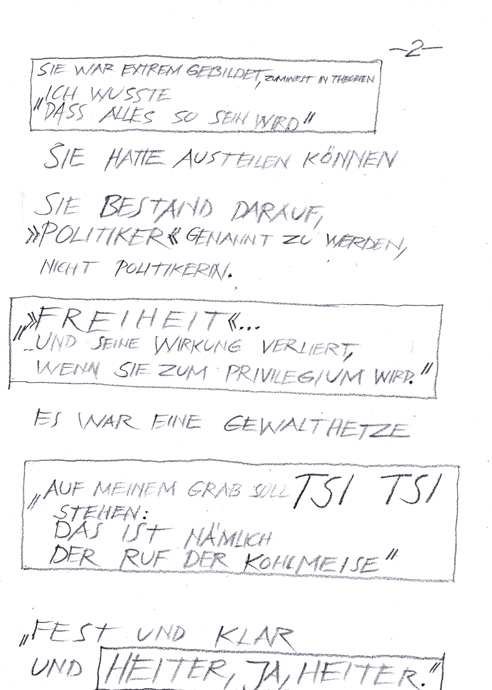 -2-
SIE WAR EXTREM GEBILDET, ZUMINDEST IN THEORIEN
„ICH WUSSTE
DASS ALLES SO SEIN WIRD"
SIE HATTE AUSTEILEN KÖNNEN
SIE BESTAND DARAUF,
»POLITIKER« GENANNT ZU WERDEN,
NICHT POLITIKERIN.
„»FREIHEIT«...
UND SEINE WIRKUNG VERLIERT,
WENN SIE ZUM PRIVILEGIUM WIRD."
ES WAR EINE GEWALTHETZE
„AUF MEINEM GRAB SOLL TSI TSI
STEHEN:
DAS IST NÄMLICH
DER RUF DER KOHLMEISE"
„FEST UND KLAR
UND HEITER, JA, HEITER."